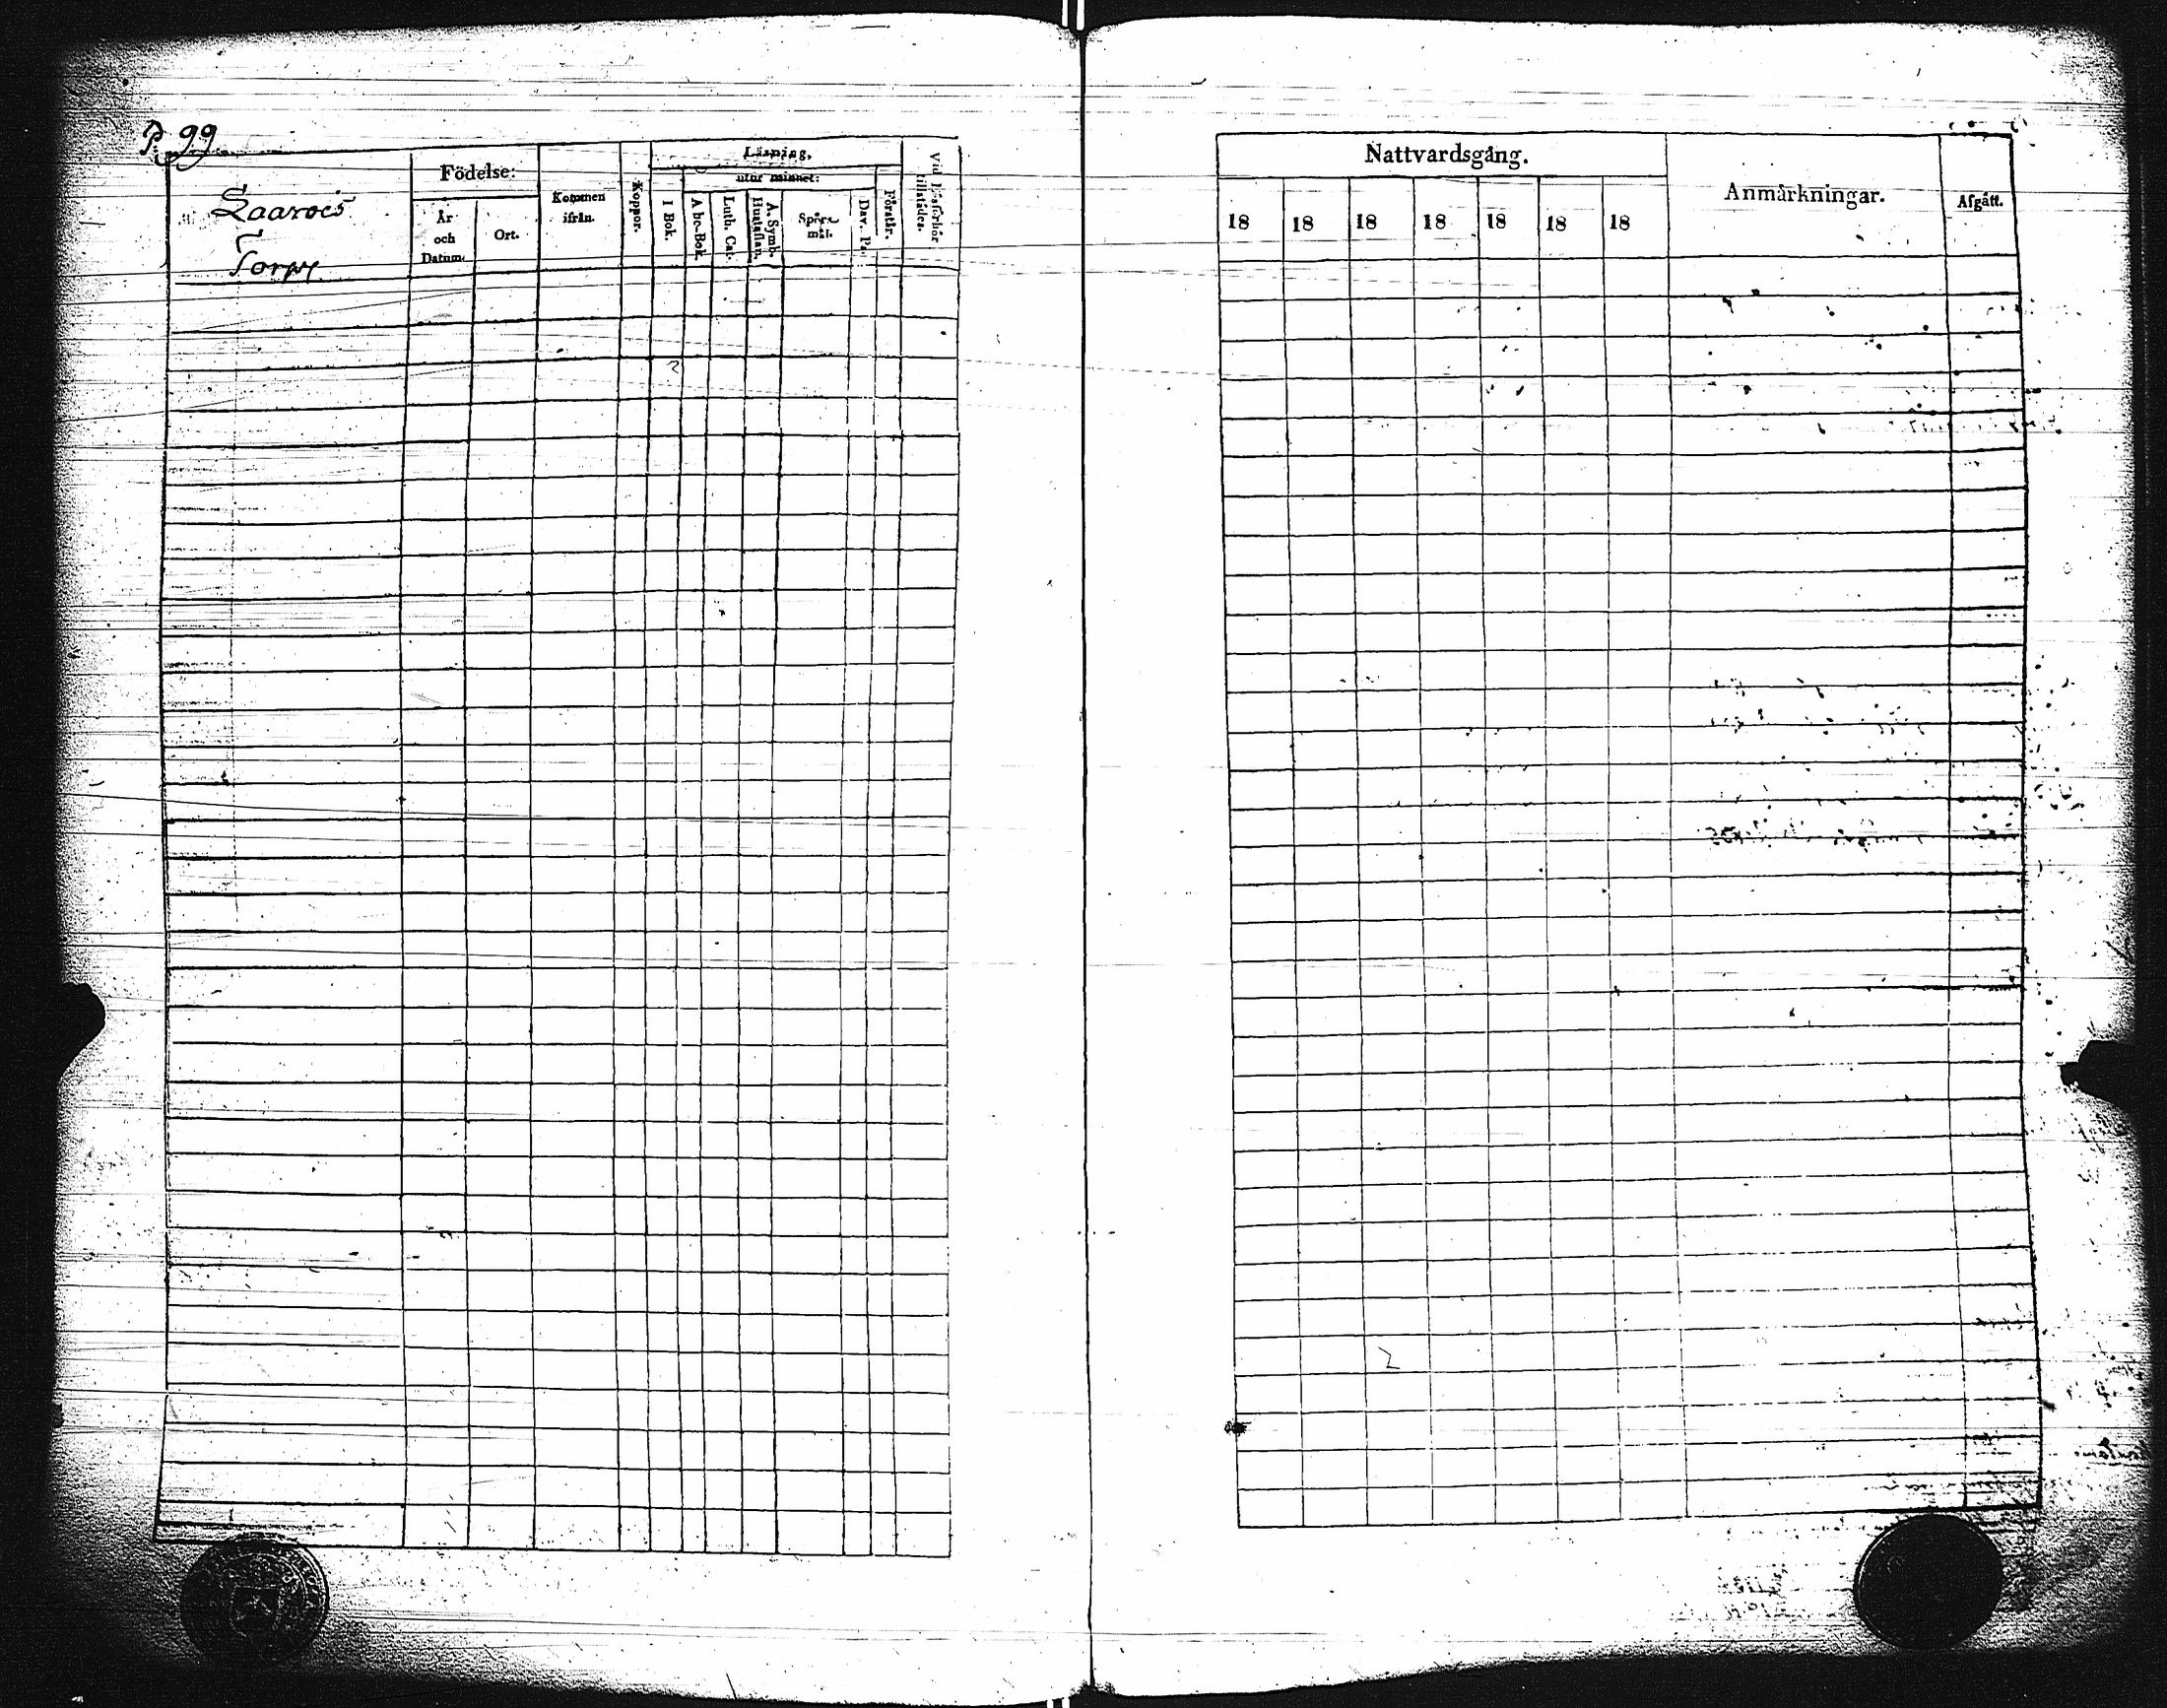 P. 99.
Laarois
Torp
Födelse:
År
och
Datum.
Ort.
Kommen
ifrån.
Koppor.
Läsning,
utur minnet:
I Bok.
A bc-Bok.
Luth. Cat.
A. Symb.
Hustaflan.
Spörs-
mål.
Dav. Ps.
Förstår.
Vid Läsförhör
tillstädes.
Nattvardsgång.
18 18 18 18 18 18 18
Anmärkningar.
Afgått.